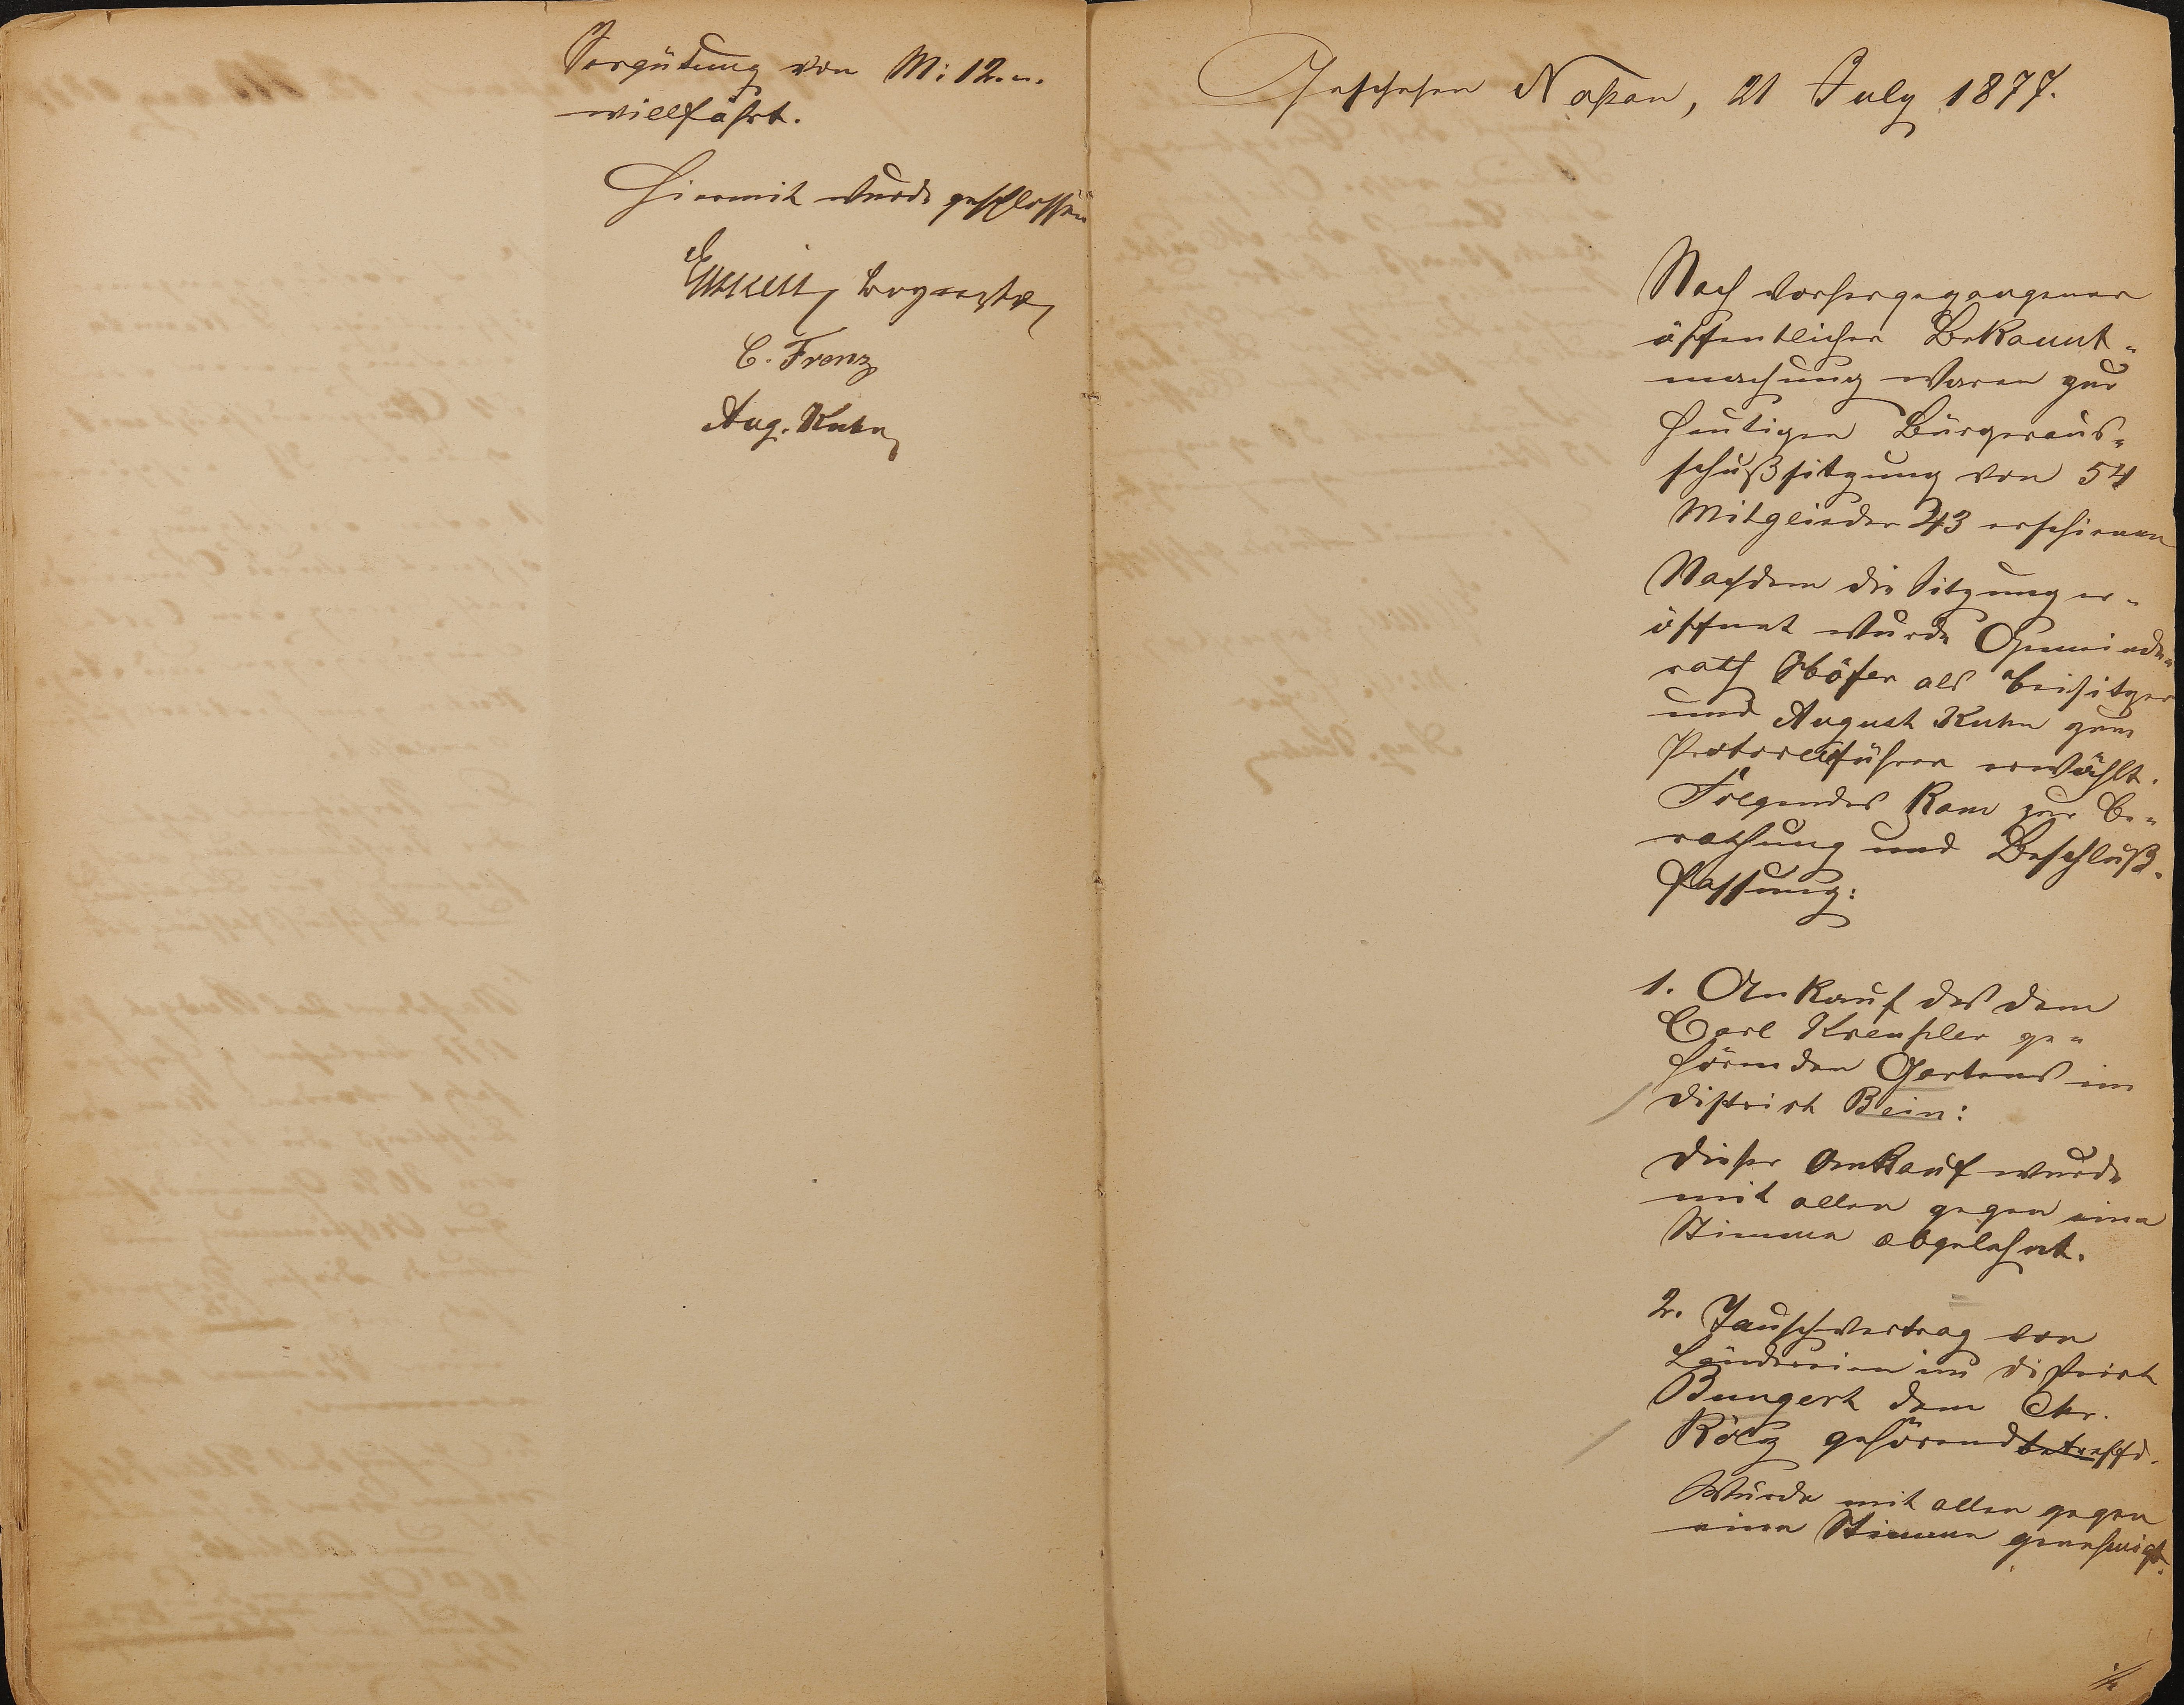 Vergütung von M: 12.
willfahrt.
Hiermit wurde geschlossen
Bürgermstr
C. Franz
Aug. Kuhn
Geschehen Naßau, 21 July 1877.
Nach vorhergegangener
öffentlicher Bekannt-
machung waren zur
heutigen Bürgeraus-
schußsitzung von 54
Mitglieder 43 erschienen
Nachdem die Sitzung er-
öffnet wurde Gemeinde-
rath Höfer als Beisitzer
und August Kuhn zum
Protocollführer erwählt.
Folgendes kam zur Be-
rathung und Beschluß-
fassung:
1. Ankauf des dem
Carl Kreußler ge-
hörenden Gartens im
District Bein:
Dieser Ankauf wurde
mit allen gegen eine
Stimme abgelehnt.
2. Tauschvertrag von
Ländereien im District
Bungert dem Chr.
gehörend betreffd.
Wurde mit allen gegen
eine Stimme genehmigt.